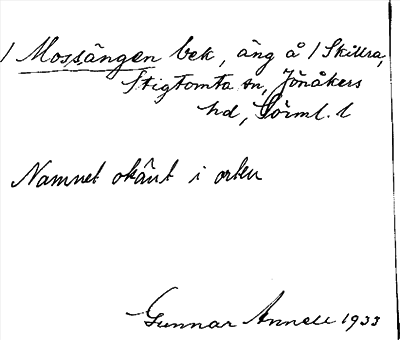 / Mossängen bek, äng å / Skillra,
Stigtomta sn, Jönåkers
hd, Sörml. l
Namnet okänt i orten
Gunnar Annell 1933